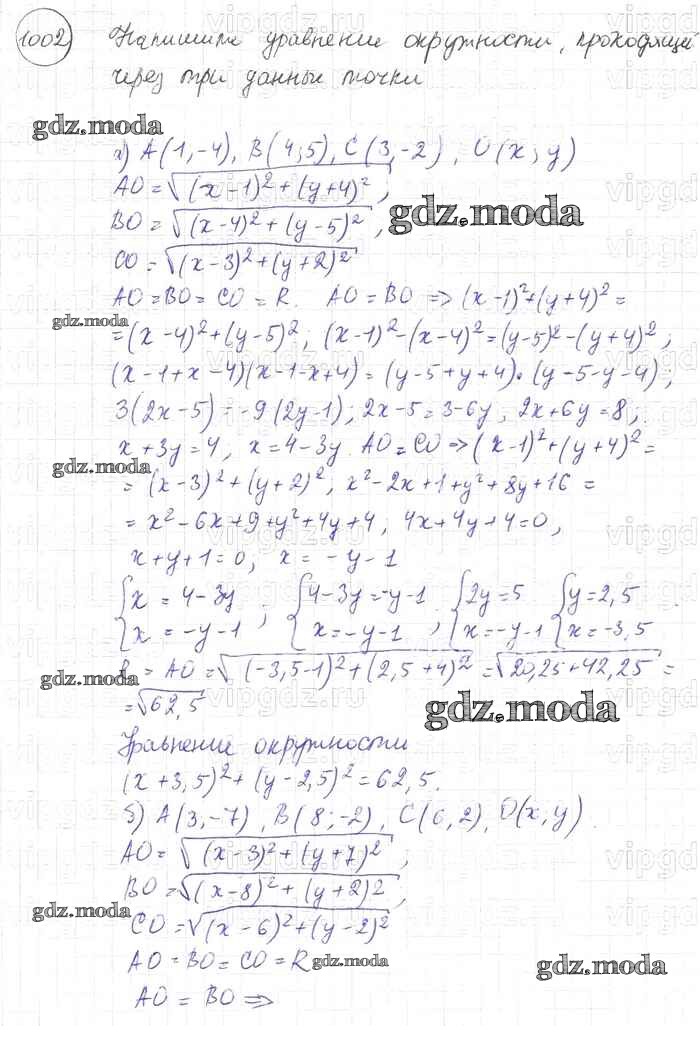 1002) Напишите уравнение окружности, проходящей
через три данные точки
gdz.moda
а) A(1,-4), B(4;5), C(3,-2), O(x;y)
AO=√((x-1)²+(y+4)²);
BO=√((x-4)²+(y-5)²,
gdz.moda
CO=√((x-3)²+(y+2)²
AO=BO=CO=R. AO=BO ⇒ (x-1)²+(y+4)²=
gdz.moda
=(x-4)²+(y-5)²; (x-1)²-(x-4)²=(y-5)²-(y+4)²;
(x-1+x-4)(x-1-x+4)=(y-5+y+4)·(y-5-y-4);
3(2x-5)=-9(2y-1); 2x-5=3-6y, 2x+6y=8;
x+3y=4, x=4-3y. AO=CO ⇒ (x-1)²+(y+4)²=
gdz.moda
=(x-3)²+(y+2)², x²-2x+1+y²+8y+16=
=x²-6x+9+y²+4y+4, 4x+4y+4=0,
x+y+1=0, x=-y-1
{x=4-3y {4-3y=-y-1 {2y=5 {y=2,5
{x=-y-1; {x=-y-1, {x=-y-1 {x=-3,5
R=AO=√((-3,5-1)²+(2,5+4)²=√20,25+42,25=
gdz.moda
=√62,5
gdz.moda
Уравнение окружности
(x+3,5)²+(y-2,5)²=62,5.
б) A(3,-7), B(8;-2), C(6,2), O(x;y).
AO=√((x-3)²+(y+7)²;
BO=√((x-8)²+(y+2)2;
gdz.moda
CO=√((x-6)²+(y-2)²
AO=BO=CO=R
gdz.moda
gdz.moda
AO=BO ⇒